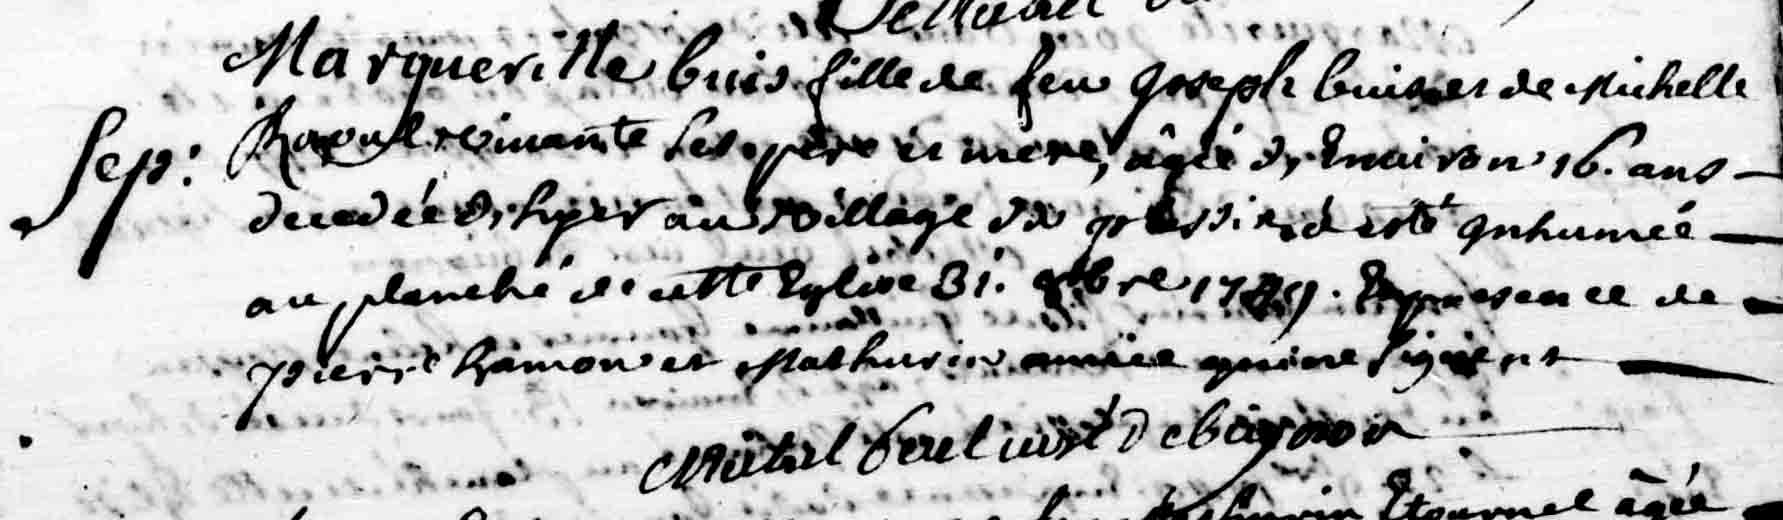 Margueritte buis fille de feu Joseph buis et de Michelle
Sep: Raoul vivante ses père et mere, âgée d'Environ 16. ans
decedée d'hyer au village du gressin à esté Inhumée
au planché de cette Eglise 31. bre 17 9. En presence de
pierre hamon et Mathurin qui ne signent
Michel curé De
Mathurin Etournel âgée